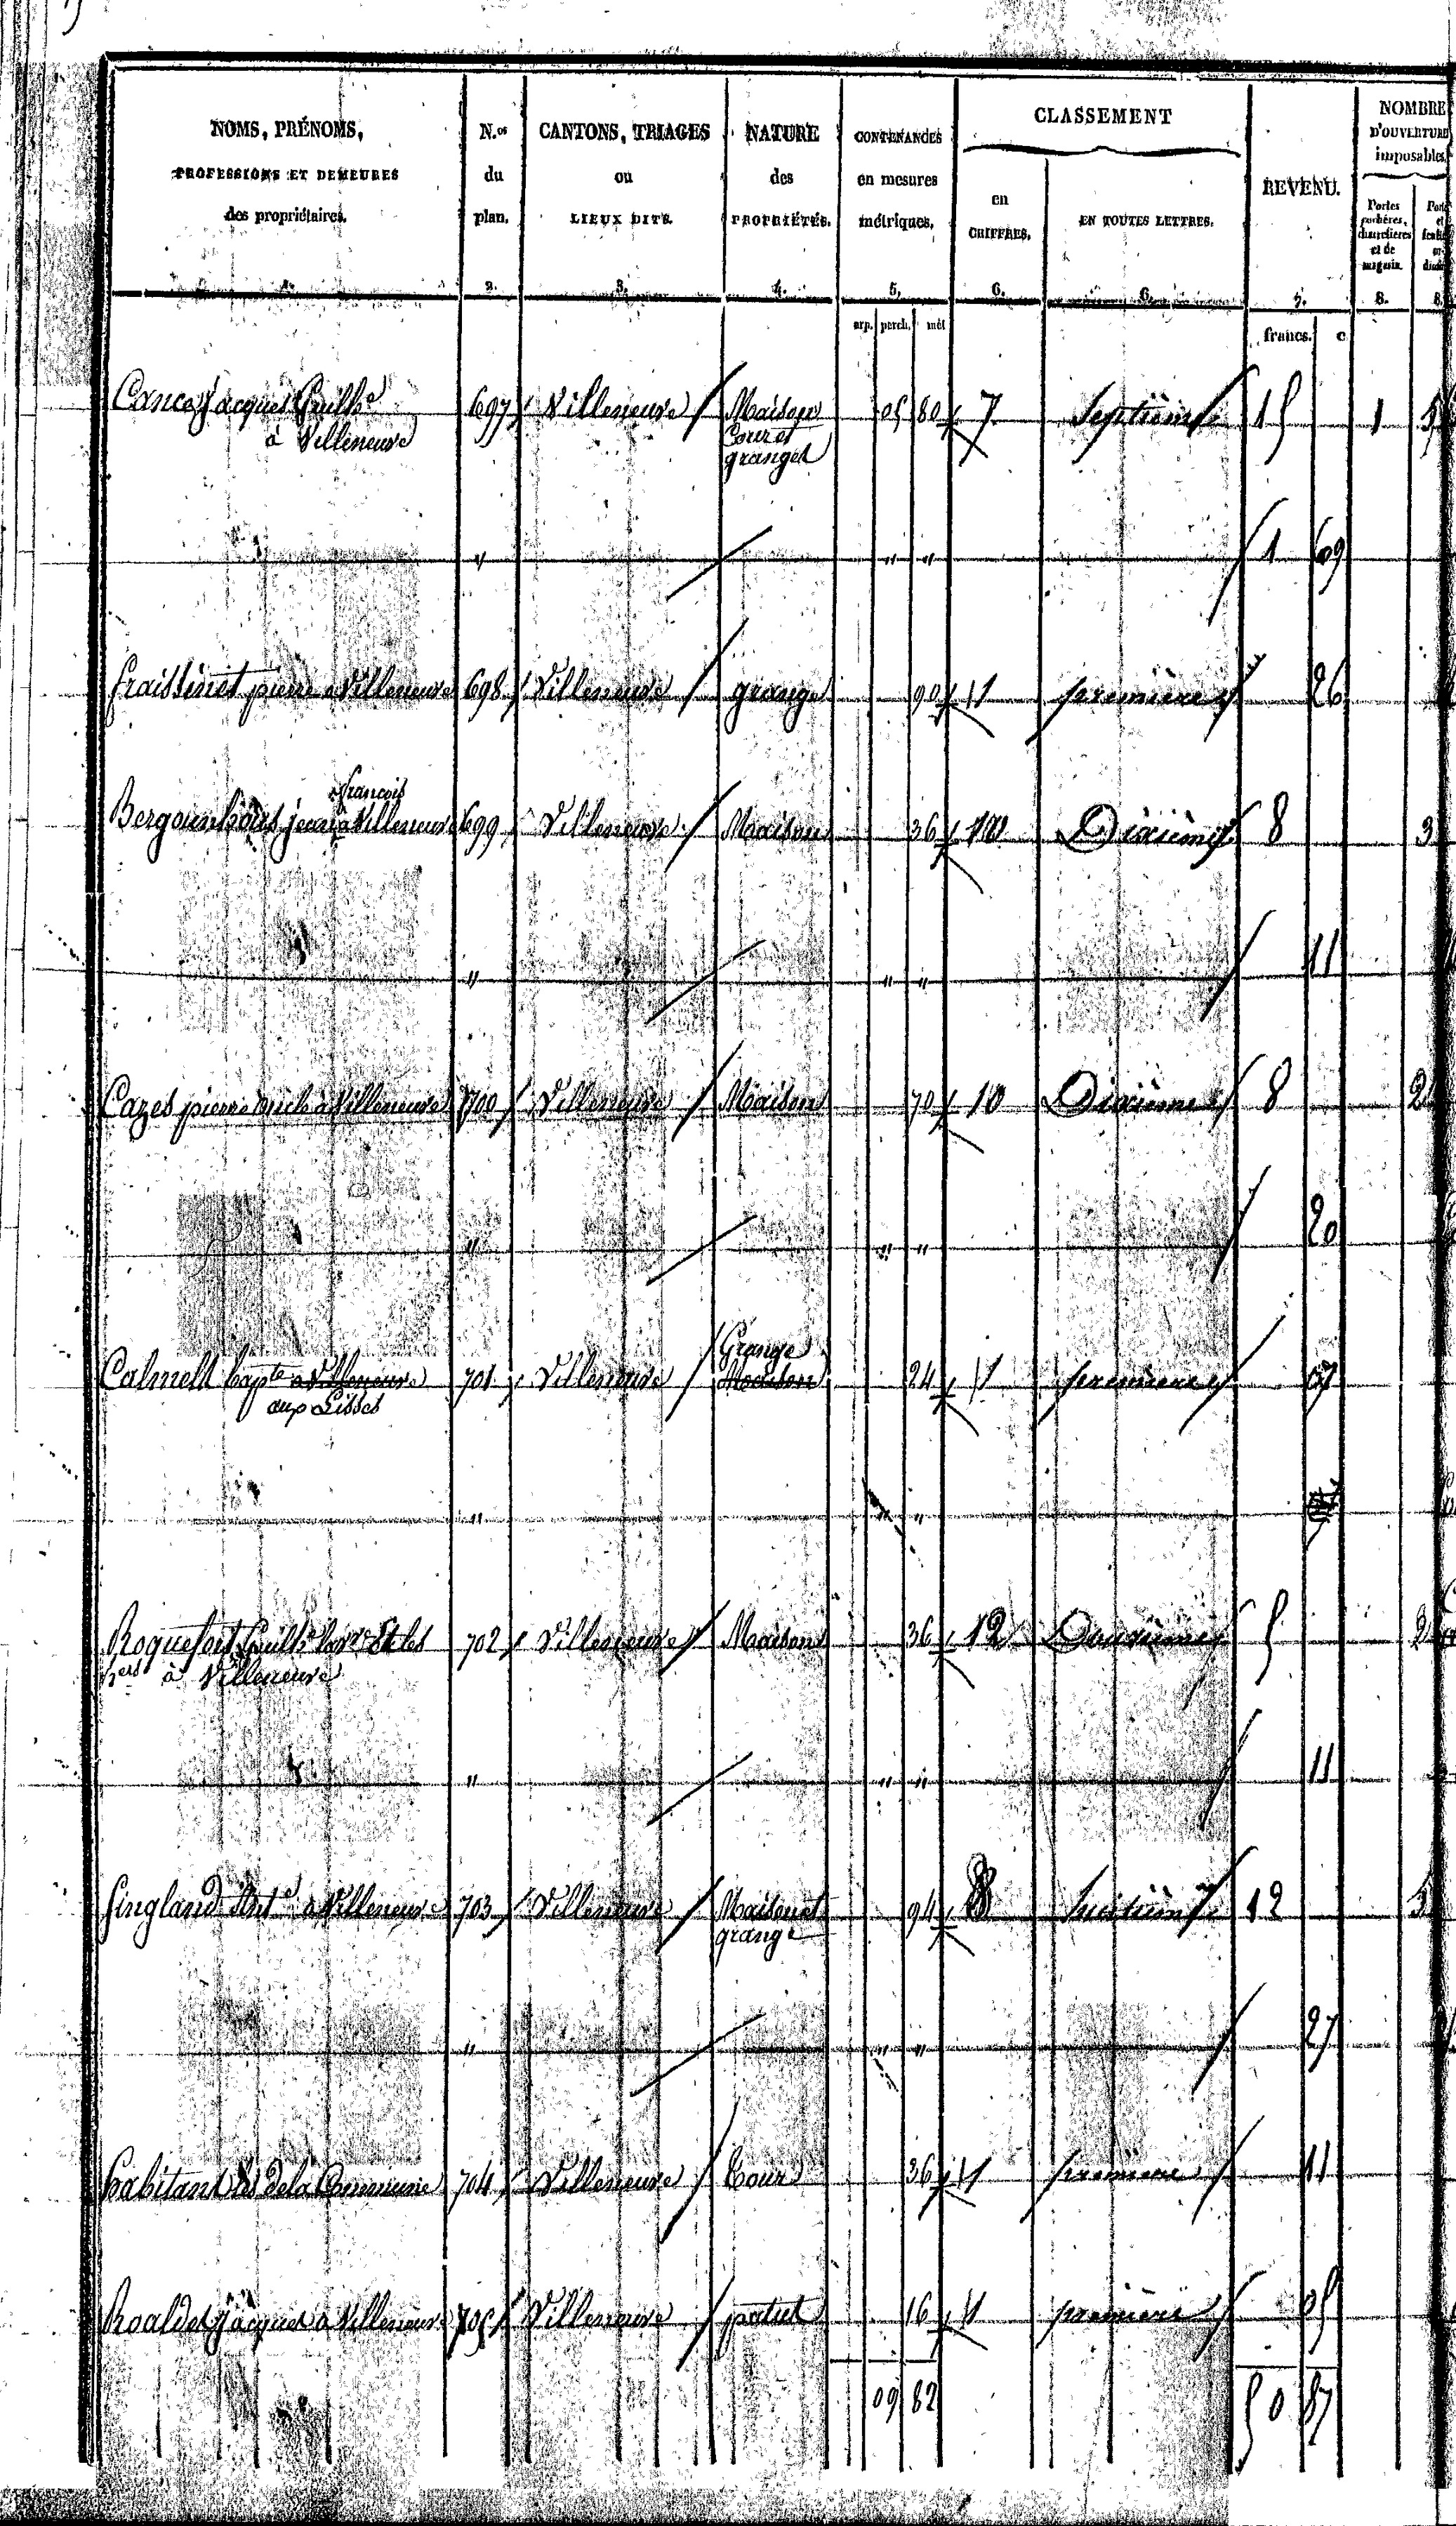 NOMS, PRÉNOMS, PROFESSIONS ET DEMEURES des propriétaires. 1.
N.os du plan. 2.
CANTONS, TRIAGES ou LIEUX DITS. 3.
NATURE des PROPRIÉTÉS. 4.
CONTENANCES en mesures métriques. 5.
CLASSEMENT
en CHIFFRES. 6.
EN TOUTES LETTRES. 6.
REVENU. 7.
NOMBRE D'OUVERTURE imposables.
Portes cochères, charretières et de magasin. 8.
arp. perch. mèt francs. c
Jacques Guill.e 697 Villeneuve Maison 05 80 7 Septième 15 1 5
à Villeneuve Cour et
grange
" " " 1 69
fraissinet pierre a Villeneuve 698 Villeneuve grange 90 1 première 26
françois
jean a Villeneuve 699 Villeneuve Maison 36 10 Dixième 8 3
" " " 11
Cazes pierre a Villeneuve 700 Villeneuve Maison 70 10 Dixième 8 2
" " " 20
Grange
Calmels bapte a Villeneuve 701 Villeneuve Maison 24 1 première 07
aux Lisses
" " "
Roquefort Guill.e la v.ve et les 702 Villeneuve Maison 36 12 Douzième 5 2
hers à Villeneuve
" " " 11
Singland Ant.e a Villeneuve 703 Villeneuve Maison et 94 8 huitième 12 5
grange
" " " 27
habitants les de la Commune 704 Villeneuve Cour 36 1 première 11
Roaldes Jacques a Villeneuve 705 Villeneuve patus 16 1 première 05
09 82 50 87